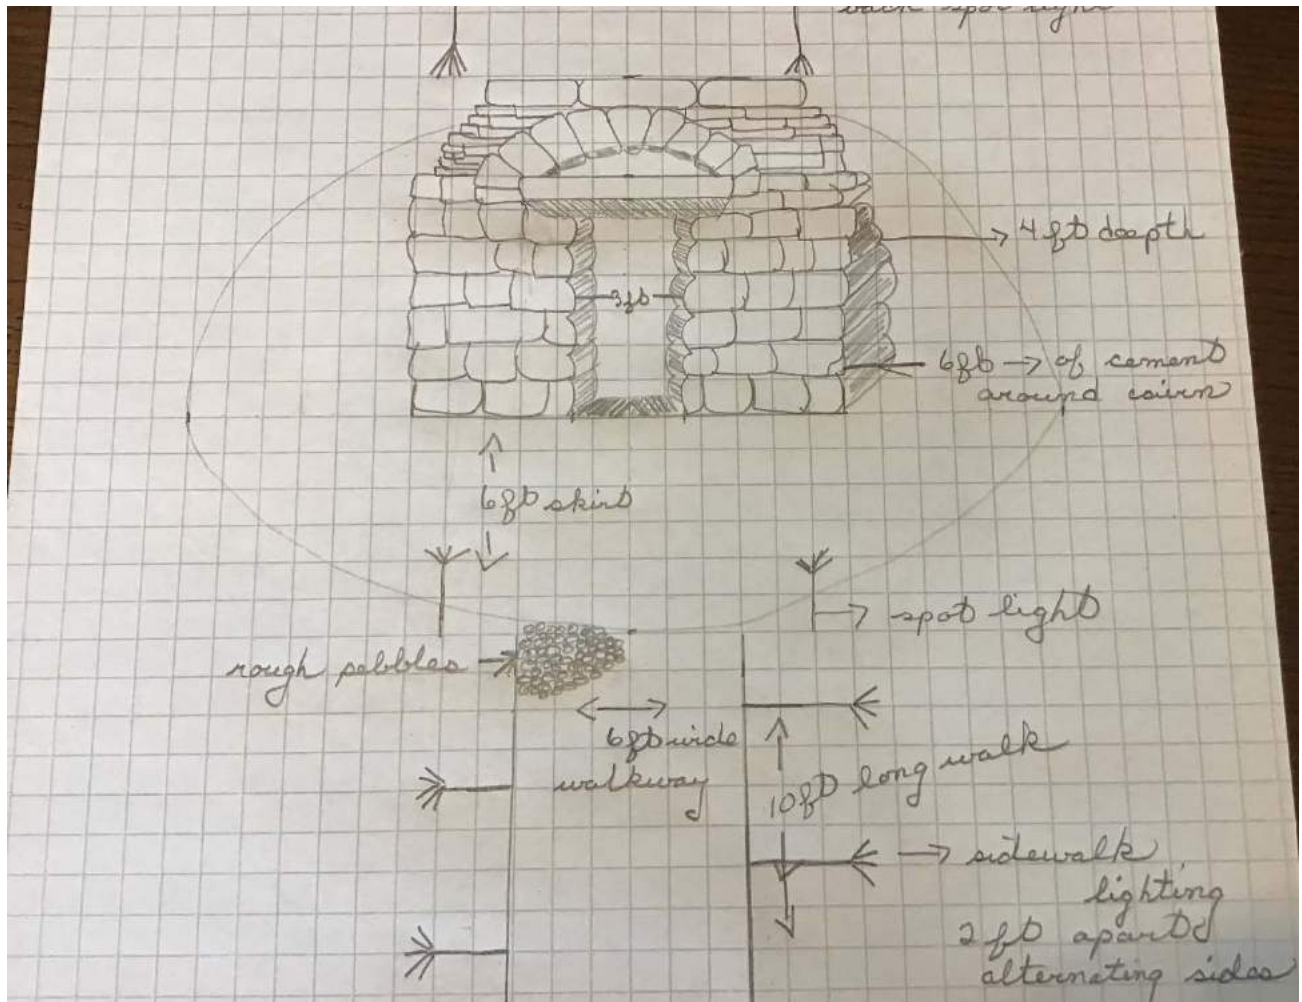 back spot light
4 ft deepth
3ft
6ft → of cement
around cairn
6ft skirt
→ spot light
rough pebbles →
6ft wide
walkway
10ft long walk
→ sidewalk
lighting
2 ft apart &
alternating sides